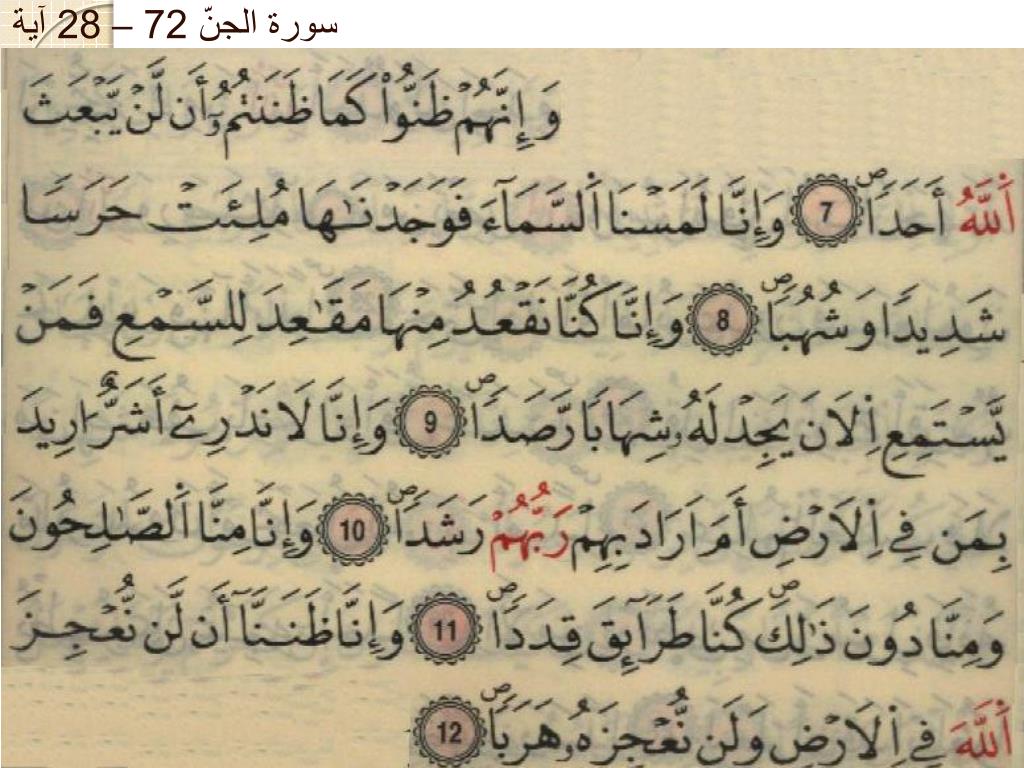 سورة الجنّ 72 – 28 آية
وَإِنَّهُمْ ظَنُّواْ كَمَا ظَنَنتُمُۥٓ أَن لَّنْ يَّبْعَثَ
اَ۬للَّهُ أَحَداٗۖ 7 وَإِنَّا لَمَسْنَا اَ۬لسَّمَآءَ فَوَجَدْنَٰهَا مُلِئَتْ حَرَساٗ
شَدِيداٗ وَشُهُباٗۖ 8 وَإِنَّا كُنَّا نَقْعُدُ مِنْهَا مَقَٰعِدَ لِلسَّمْعِ فَمَنْ
يَّسْتَمِعِ اِ۬لَانَ يَجِدْ لَهُۥ شِهَاباٗ رَّصَداٗۖ 9 وَإِنَّا لَا نَدْرِےٓ أَشَرٌّ ا۟رِيدَ
بِمَن فِے اِ۬لَارْضِ أَمَ اَرَادَ بِهِمْ رَبُّهُمْ رَشَداٗۖ 10 وَإِنَّا مِنَّا اَ۬لصَّٰلِحُونَ
وَمِنَّا دُونَ ذَٰلِكَۖ كُنَّا طَرَآئِقَ قِدَداٗۖ 11 وَإِنَّا ظَنَنَّآ أَن لَّن نُّعْجِزَ
اَ۬للَّهَ فِے اِ۬لَارْضِ وَلَن نُّعْجِزَهُۥ هَرَباٗۖ 12